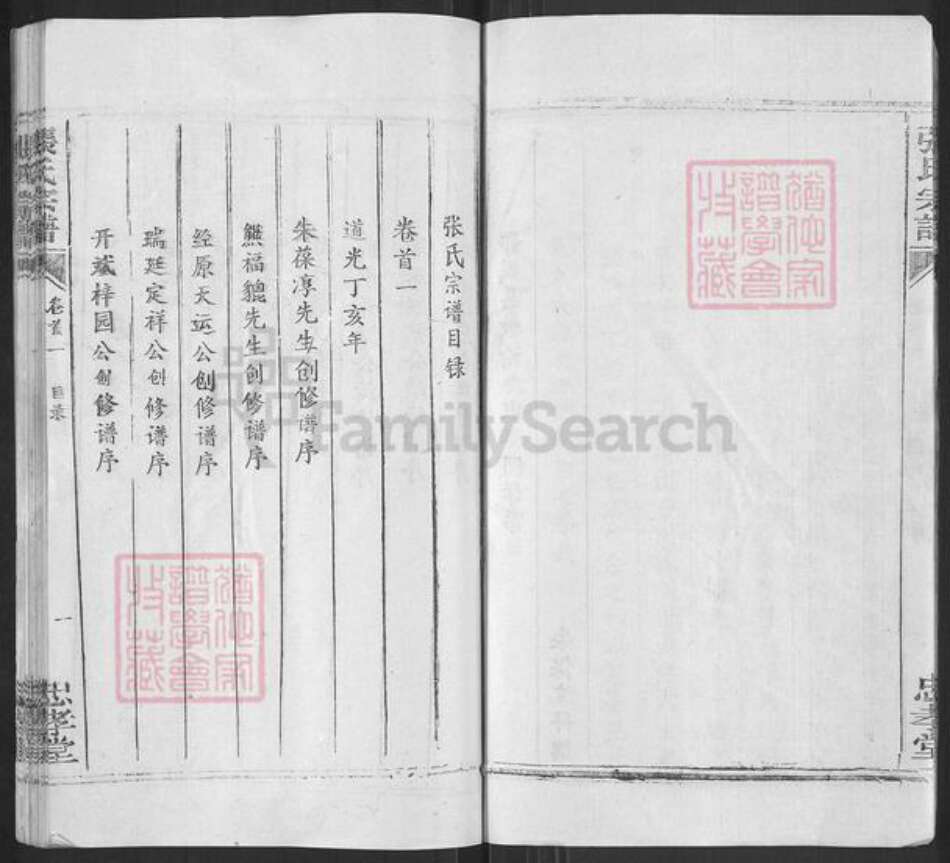 张氏宗谱目录
卷首一
道光丁亥年
朱葆淳先生创修谱序
熊福貔先生创修谱序
经原天运公创修谱序
瑞廷定祥公创修谱序
开斌梓园公创修谱序
張氏宗譜
卷首一
目录
一
忠孝堂
張氏宗譜
忠孝堂
猶他家
譜學會
收藏
猶他家
譜學會
收藏
FamilySearch